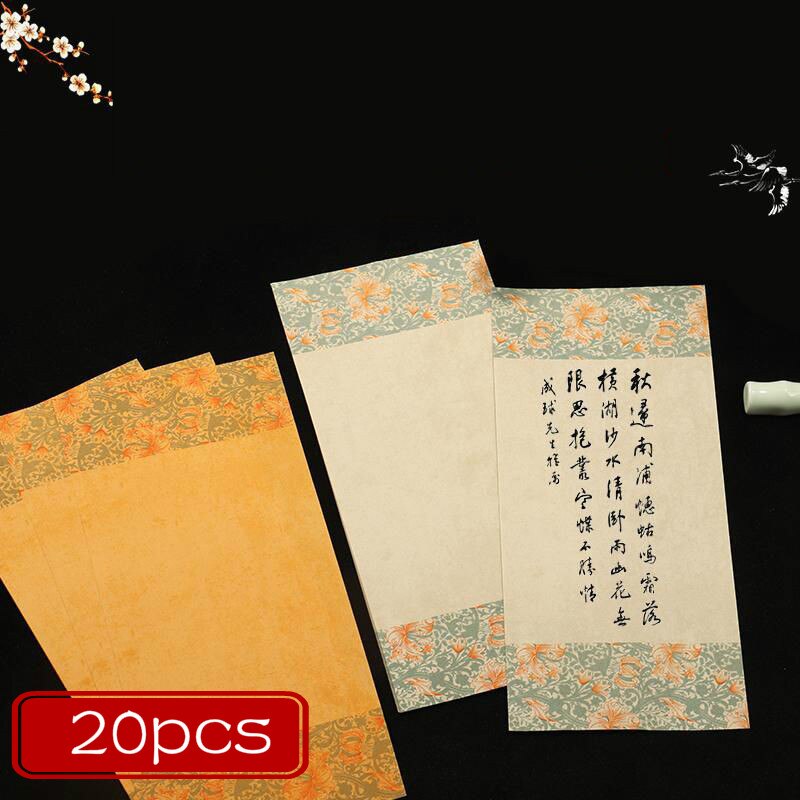 秋還南浦蟪蛄鳴霜落
橫湖沙水清卧雨幽花無
限思抱叢寒蝶不勝情
成球先生雅
20pcs